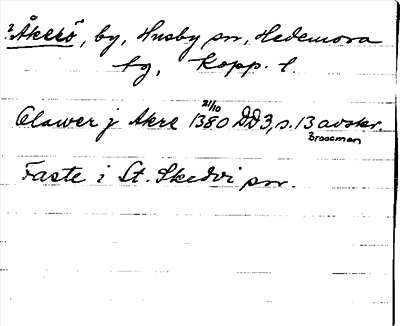 ? Åkerö, by, Husby sn, Hedemora
tg, Kopp. l.
21/10
Olawer j Akre 1380 DD3, s. 13 avskr.
Broocman
Faste i St. Skedvi sn.